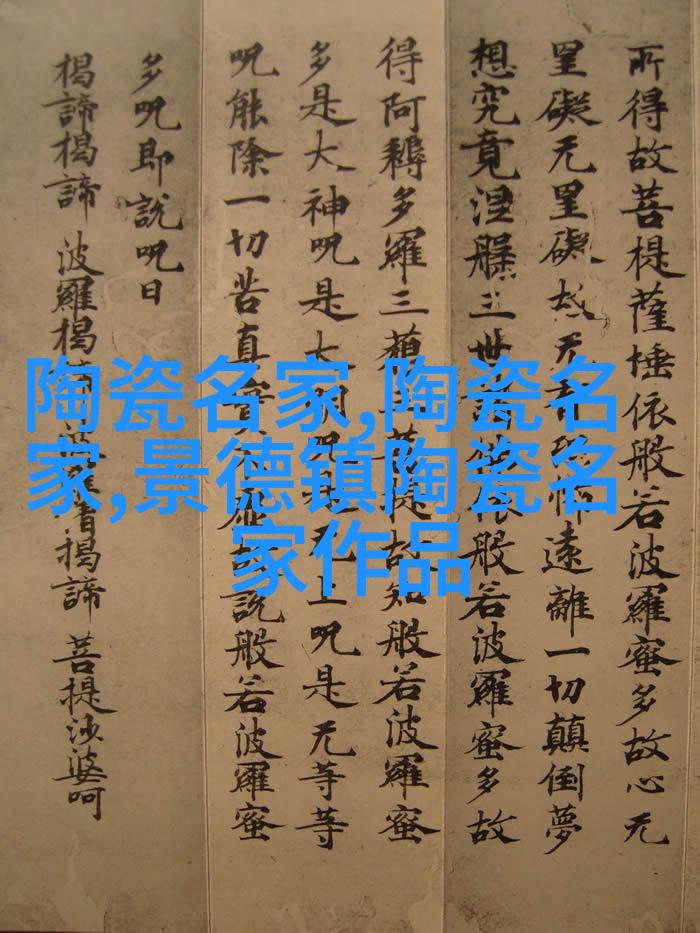 陶瓷名家,陶瓷名
家,景德镇陶瓷名
家作品
所得故菩提薩埵依般若波羅蜜多故心无
罣礙无罣礙故无怖遠離一切顛倒夢
想究竟涅槃三世依般若波羅蜜多故
得阿耨多羅三藐菩提故知般若波羅蜜
多是大神呪是大明呪是无上呪是无等等
呪能除一切苦真實故說般若波羅蜜
多呪即說呪曰
揭諦揭諦 波羅揭諦 僧揭諦 菩提沙婆呵